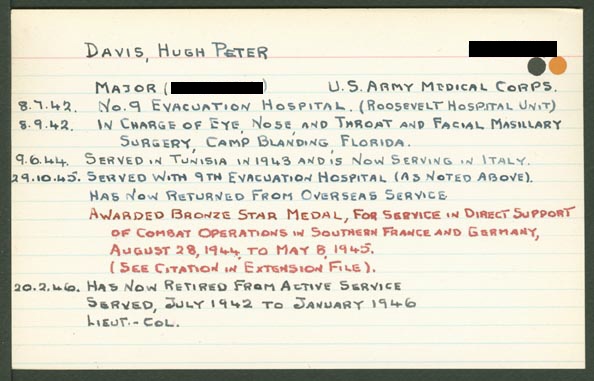 DAVIS, HUGH PETER
MAJOR ( ) U.S. ARMY MEDICAL CORPS.
8.7.42. NO. 9 EVACUATION HOSPITAL. (ROOSEVELT HOSPITAL UNIT)
8.9.42. IN CHARGE OF EYE, NOSE, AND THROAT AND FACIAL MASILLARY
SURGERY, CAMP BLANDING, FLORIDA.
9.6.44. SERVED IN TUNISIA IN 1943 AND IS NOW SERVING IN ITALY.
29.10.45. SERVED WITH 9TH EVACUATION HOSPITAL (AS NOTED ABOVE).
HAS NOW RETURNED FROM OVERSEAS SERVICE
AWARDED BRONZE STAR MEDAL, FOR SERVICE IN DIRECT SUPPORT
OF COMBAT OPERATIONS IN SOUTHERN FRANCE AND GERMANY,
AUGUST 28, 1944, TO MAY 8, 1945.
(SEE CITATION IN EXTENSION FILE).
20.2.46. HAS NOW RETIRED FROM ACTIVE SERVICE
SERVED, JULY 1942 TO JANUARY 1946
LIEUT.-COL.